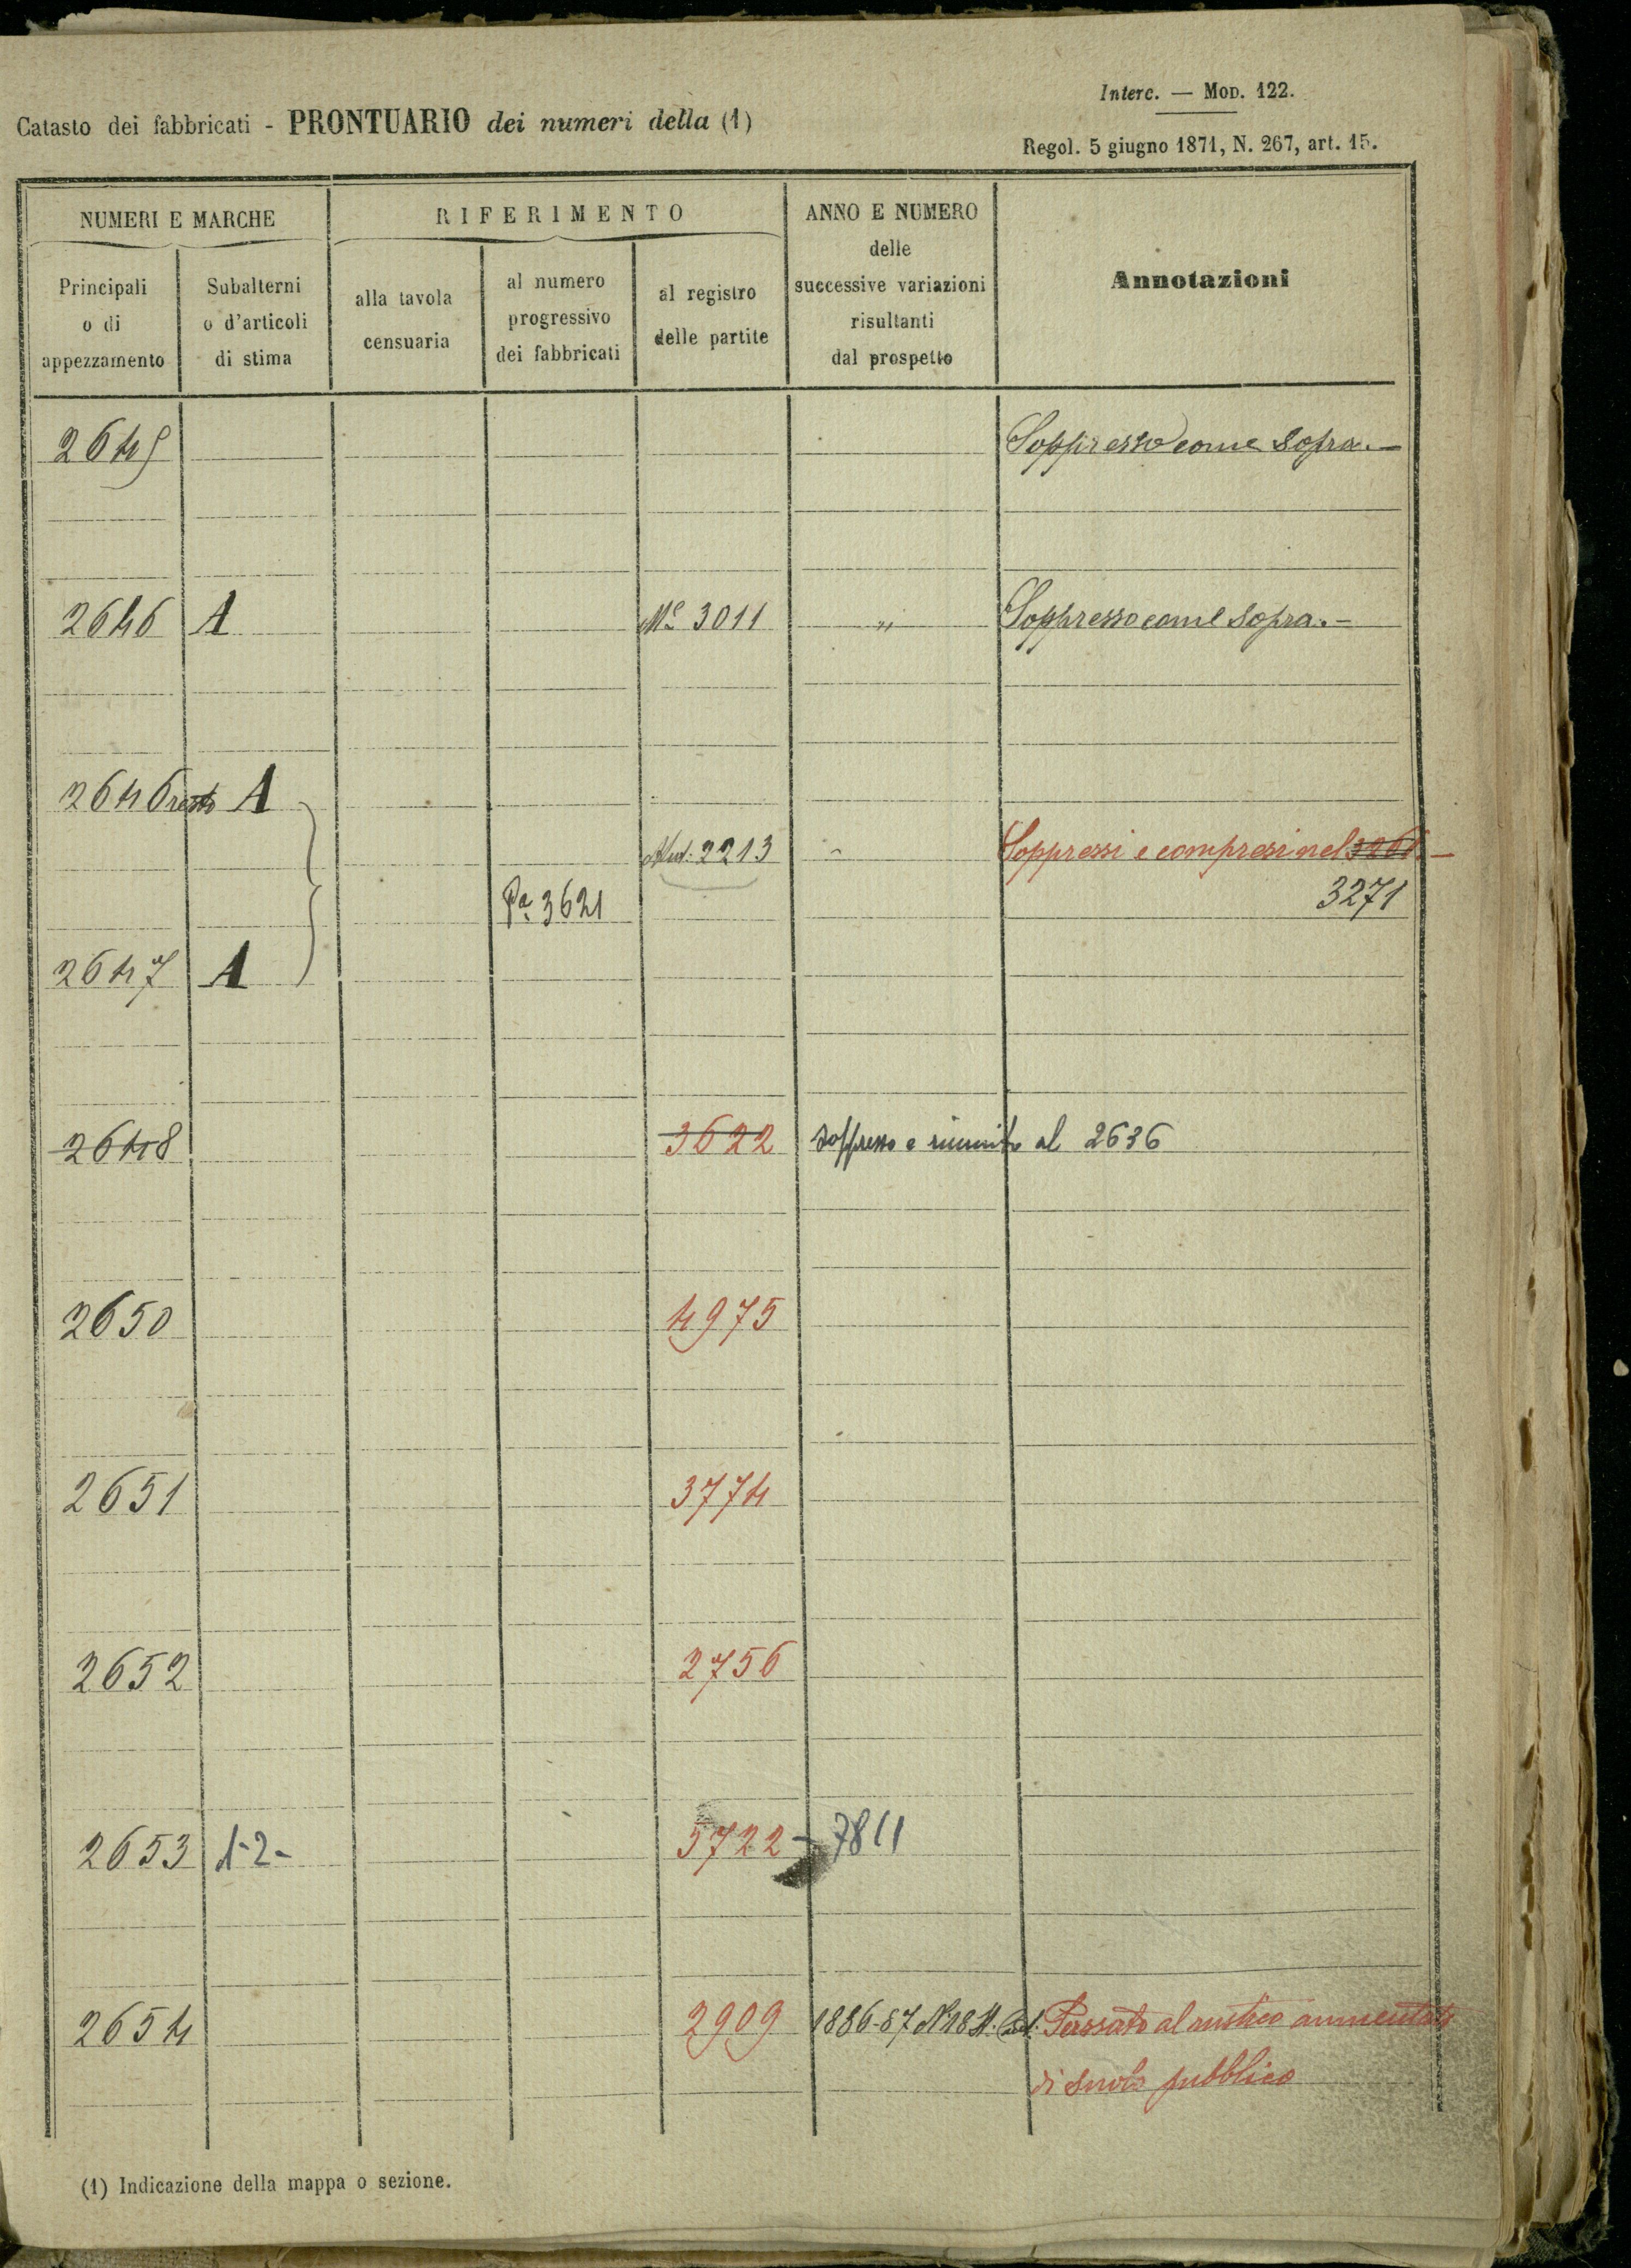 Interc. — Mod. 122.
Catasto dei fabbricati - PRONTUARIO dei numeri della (1)
Regol. 5 giugno 1871, N. 267, art. 15.
NUMERI E MARCHE
Principali o di appezzamento
Subalterni o d'articoli di stima
RIFERIMENTO
alla tavola censuaria
al numero progressivo dei fabbricati
al registro delle partite
ANNO E NUMERO delle successive variazioni risultanti dal prospetto
Annotazioni
2645 Soppresso come sopra.-
2646 A Mº 3011 " Soppresso come sopra.-
2646 resto A
2213 " Soppressi e compresi nel -
Pª 3621 3271
2647 A
2648 3622 soppresso e riunito al 2636
2650 4975
2651 3774
2652 2756
2653 1-2- 5722 - 7811
2654 2909 1886-87 N 18 Passato al rustico aumentato
di suolo pubblico
(1) Indicazione della mappa o sezione.